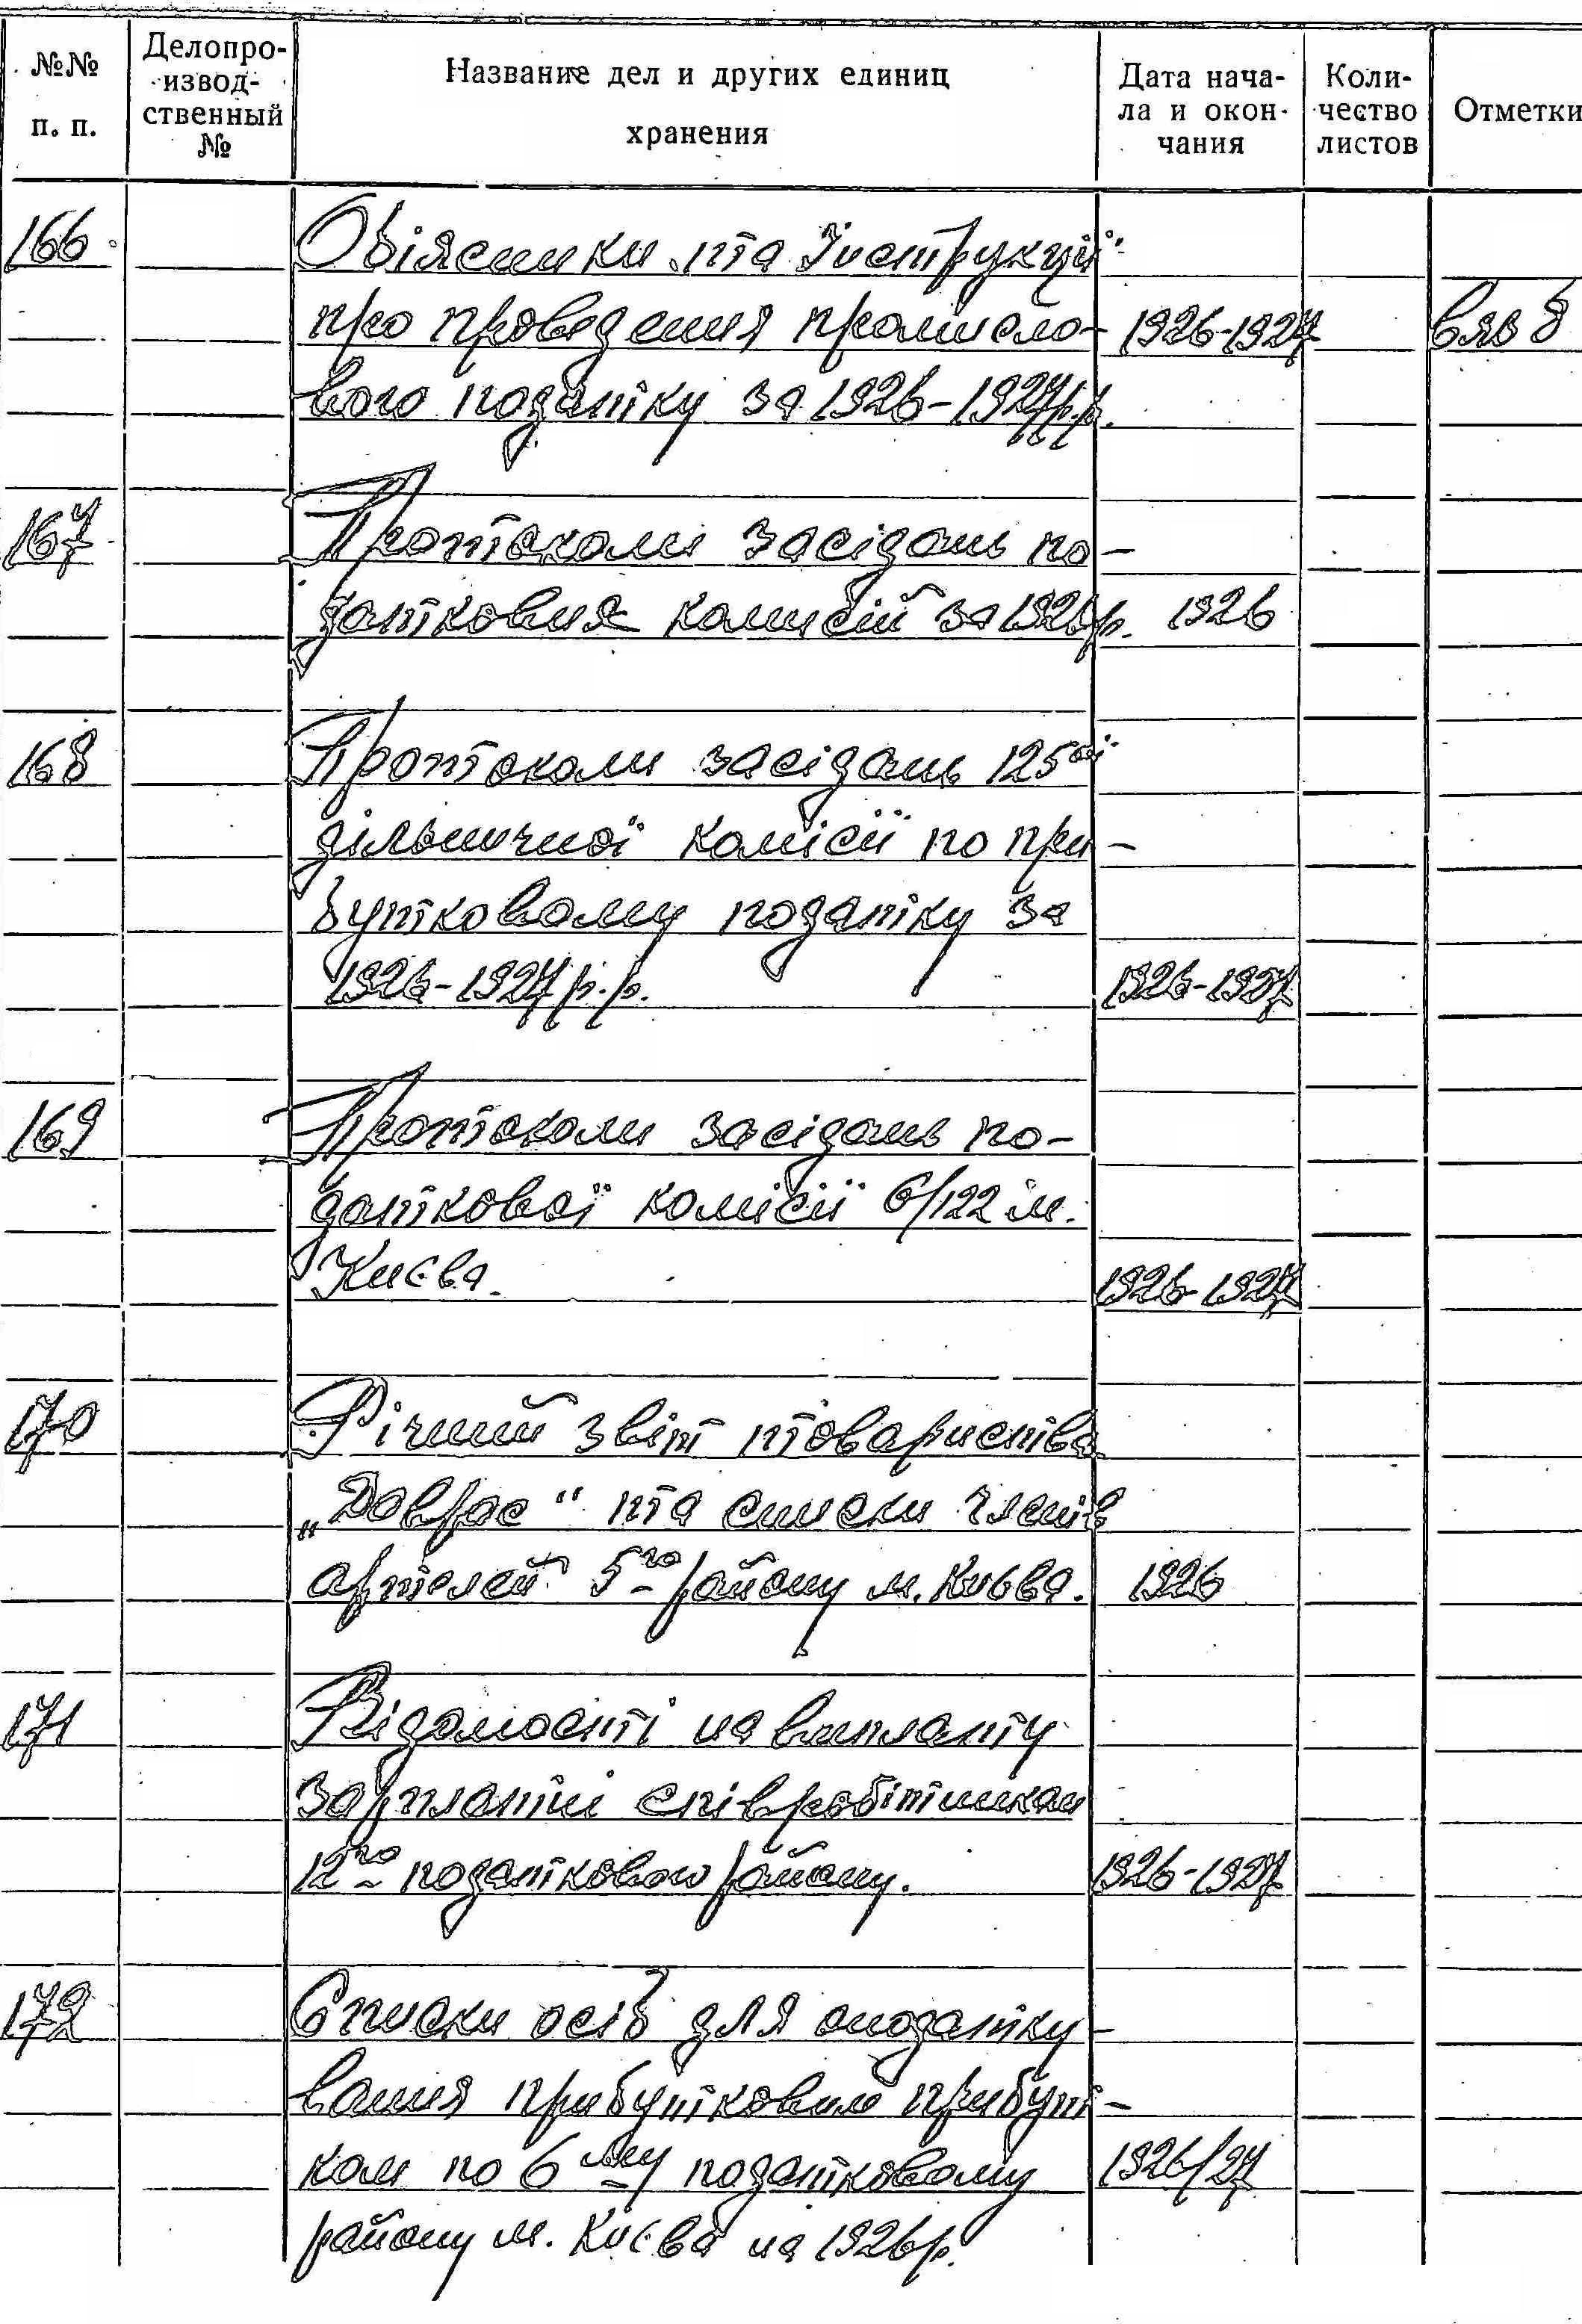 №№ п. п.
Делопро-
извод-
ственный
№
Название дел и других единиц
хранения
Дата нача-
ла и окон-
чания
Коли-
чество
листов
Отметки
166
Обіясники та Інструкції
про проведення промисло- 1926-1927
вого податку за 1926-1927 р.р.
167
Протоколи засідань по-
даткових комисій за 1926 р. 1926
168
Протоколи засідань 125ої
дільничної комісії по при-
бутковому податку за
1926-1927 р.р. 1926-1927
169
Протоколи засідань по-
даткової комісії 6/122 м.
Києва. 1926-1927
170
Річний звіт товариства
„Добрас“ та списки членів
артелей 5го району м. Києва. 1926
171
Відомості на виплату
зарплатні співробітникам
12го податкового району. 1926-1927
172
Списки осіб для оподатку-
вання прибутковим прибут-
ком по 6му податковому 1926/27
району м. Києва на 1926 р.